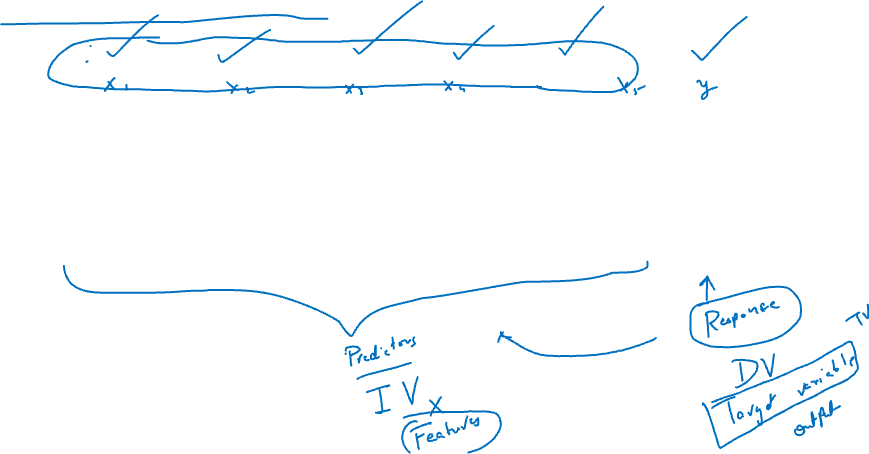 x1 x2 x3 x4 x5 y
Predictors
IV
x
Features
Response
DV
TV
Target variable
output